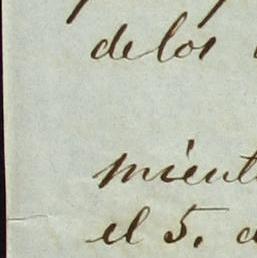 de los
mient
el 5. d